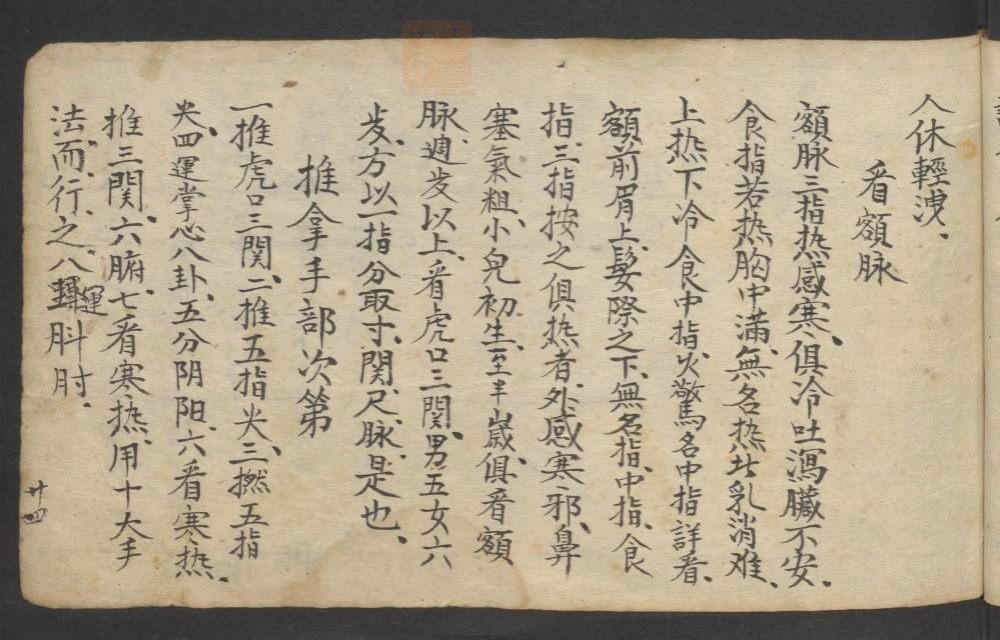 人休輕洩、
看額脉
額脉三指热感寒、俱冷吐瀉臟不安、
食指若热胸中滿、無名热此乳消难、
上热下冷食中指、火驚名中指詳看、
額前眉上、髮際之下、無名指、中指、食
指、三指按之俱热者、外感寒邪、鼻
塞氣粗、小兒初生、至半歲俱看額
脉、週岁以上、看虎口三関、男五女六
岁、方以一指分取寸、関、尺、脉、是也、
推拿手部次第
一推虎口三関、二推五指尖、三撚五指
尖、四運掌心八卦、五分阴阳、六看寒热、
推三関、六腑、七看寒热、用十大手
法、而行之、八運㪷肘、
廿四